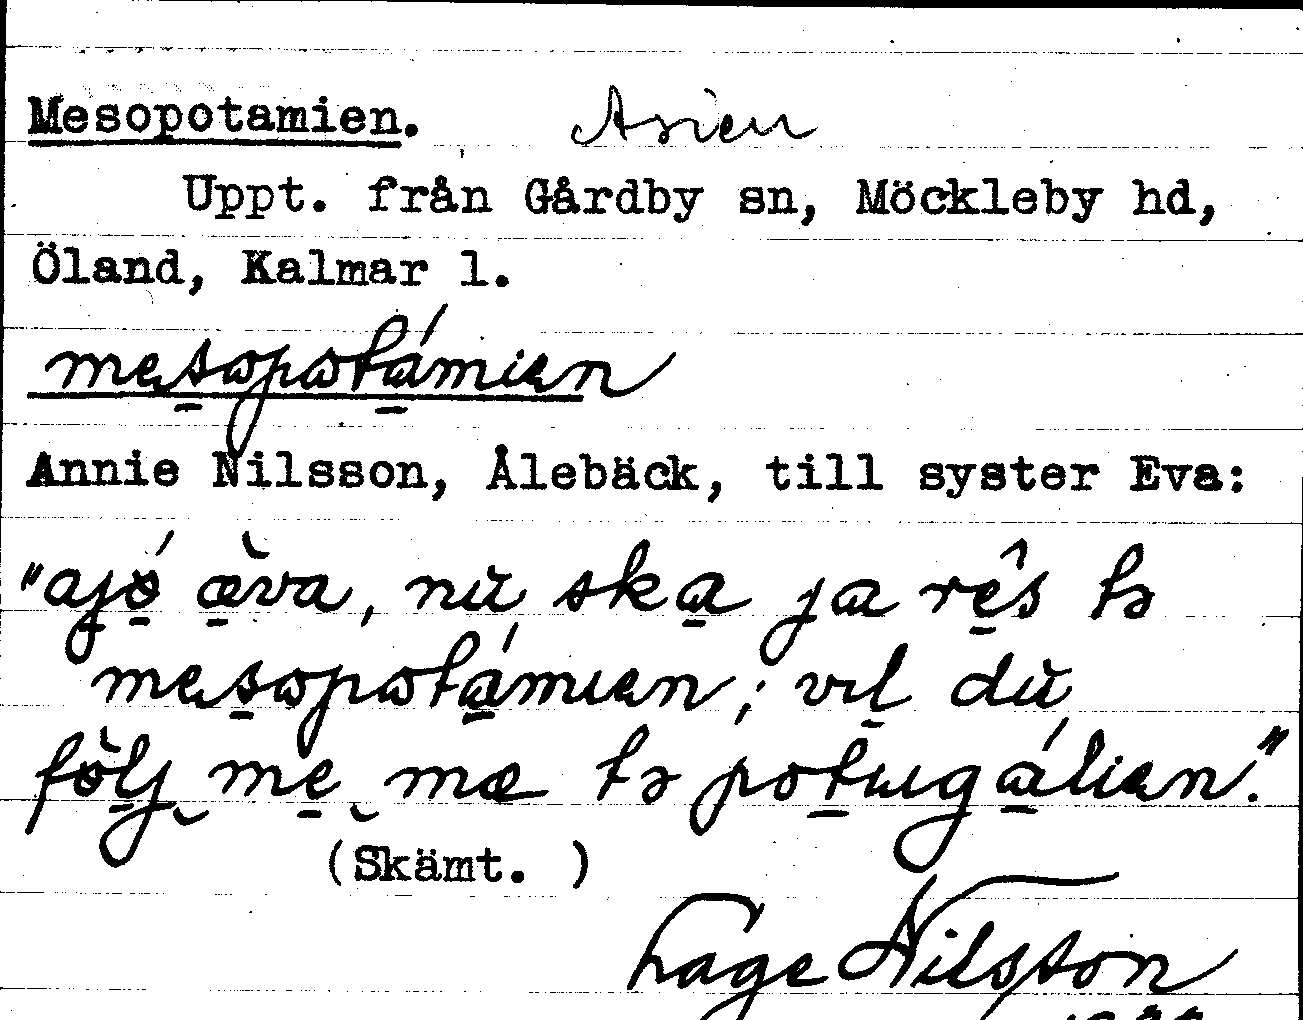 Mesopotamien. Asien
Uppt. från Gårdby sn, Möckleby hd,
Öland, Kalmar l.
mesopotámien
Annie Nilsson, Ålebäck, till syster Eva:
"ajó æ̀va, nù ska ja rês tə
mesopotámien; vıl dù
följ me mæ tə potugálien."
(Skämt. )
Lage Nilsson